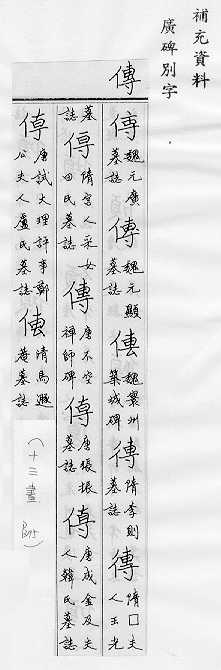 補充資料
廣碑別字
傳
傳 魏元廣墓誌 傳 魏元顯墓誌 傳 魏襄州築城碑 傳 隋李則墓誌 傳 隋□夫人王光
墓誌 傳 隋宮人采女田氏墓誌 傳 唐不空禪師碑 傳 唐張振墓誌 傳 唐成金及夫人韓氏墓誌
傳 唐試大理評事鄭公夫人盧氏墓誌 傳 清馬遐耆墓誌
(十三畫